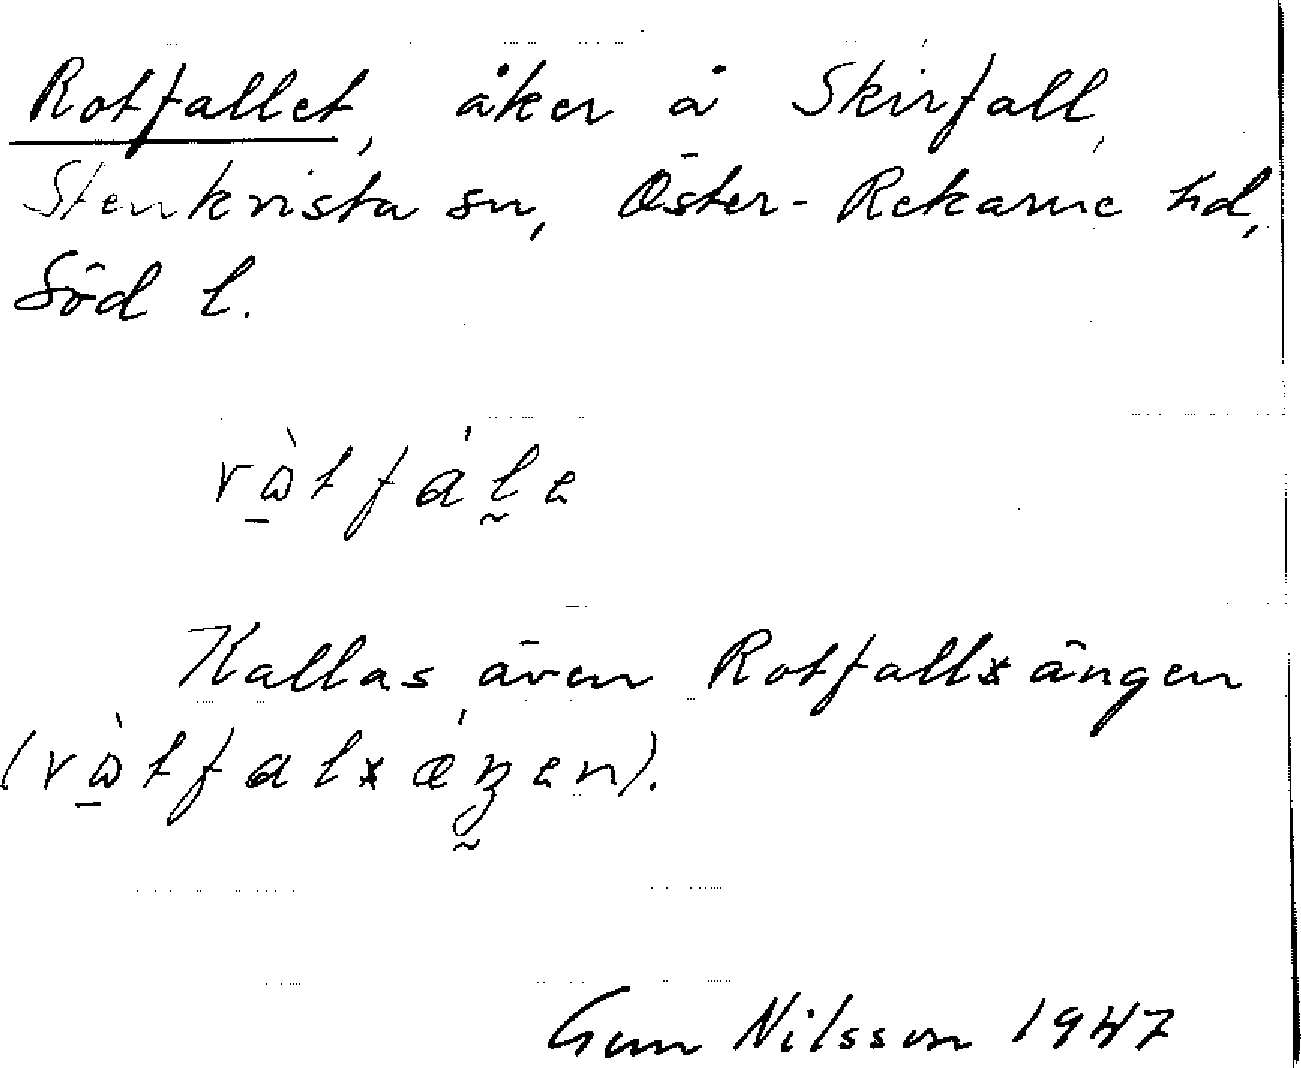 Rotfallet, åker å Skirfall,
Stenkvista sn, Öster-Rekarne hd,
Söd l.
Kallas även Rotfallsängen
Gun Nilsson 1947